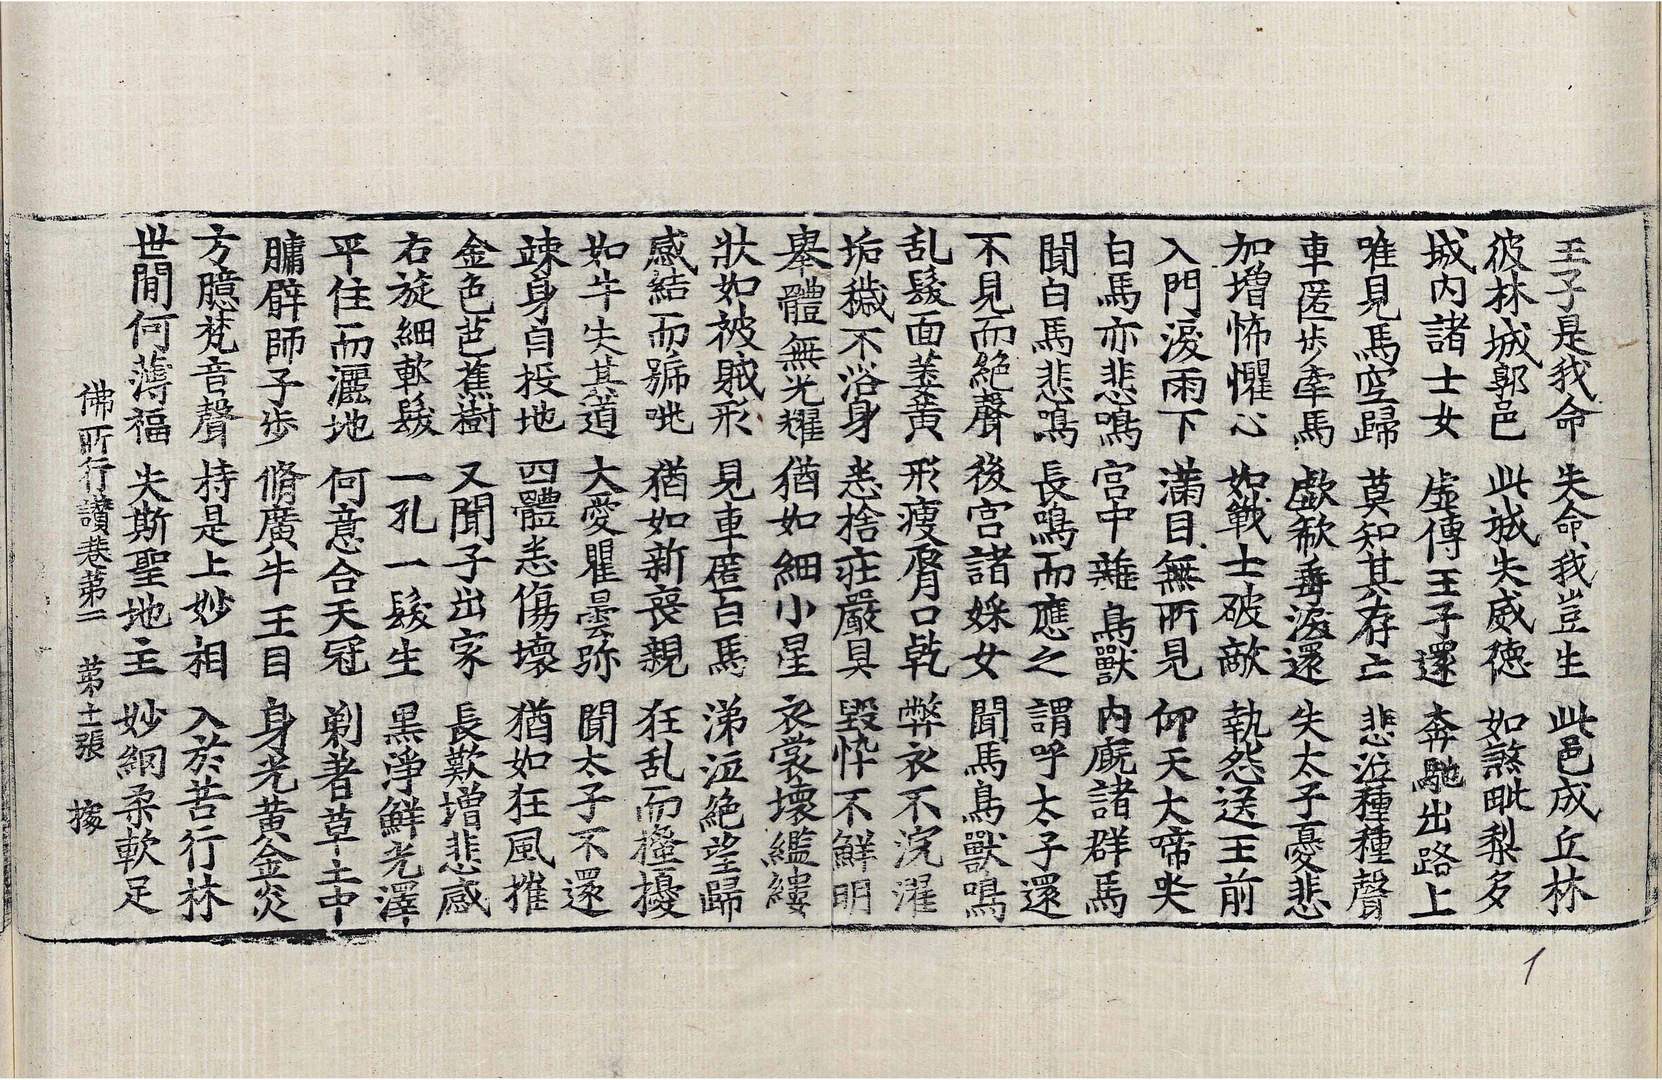 王子是我命　失命我豈生　此邑成丘林
彼林城郭邑　此城失威德　如煞毗梨多
城內諸士女　虛傳王子還　奔馳出路上
唯見馬空歸　莫知其存亡　悲泣種種聲
車匿步牽馬　歔欷垂淚還　失太子憂悲
加增怖懼心　如戰士破敵　執怨送王前
入門淚雨下　滿目無所見　仰天大啼哭
白馬亦悲鳴　宮中雜鳥獸　內廐諸群馬
聞白馬悲鳴　長鳴而應之　謂呼太子還
不見而絕聲　後宮諸婇女　聞馬鳥獸鳴
乱髮面萎黃　形瘦脣口乹　弊衣不浣濯
垢穢不浴身　悉捨莊嚴具　毀悴不鮮明
舉體無光耀　猶如細小星　衣裳壞繿縷
狀如被賊形　見車匿白馬　涕泣絕望歸
感結而號咷　猶如新喪親　狂乱而搔擾
如牛失其道　大愛瞿曇弥　聞太子不還
竦身自投地　四體悉傷壞　猶如狂風摧
金色芭蕉樹　又聞子出家　長歎增悲感
右旋細軟髮　一孔一髮生　黑淨鮮光澤
平住而灑地　何意合天冠　剃著草土中
𦟛臂師子步　脩廣牛王目　身光黃金炎
方臆梵音聲　持是上妙相　入於苦行林
世間何薄福　失斯聖地主　妙網柔軟足
佛所行讚卷第二　第十張　據
1